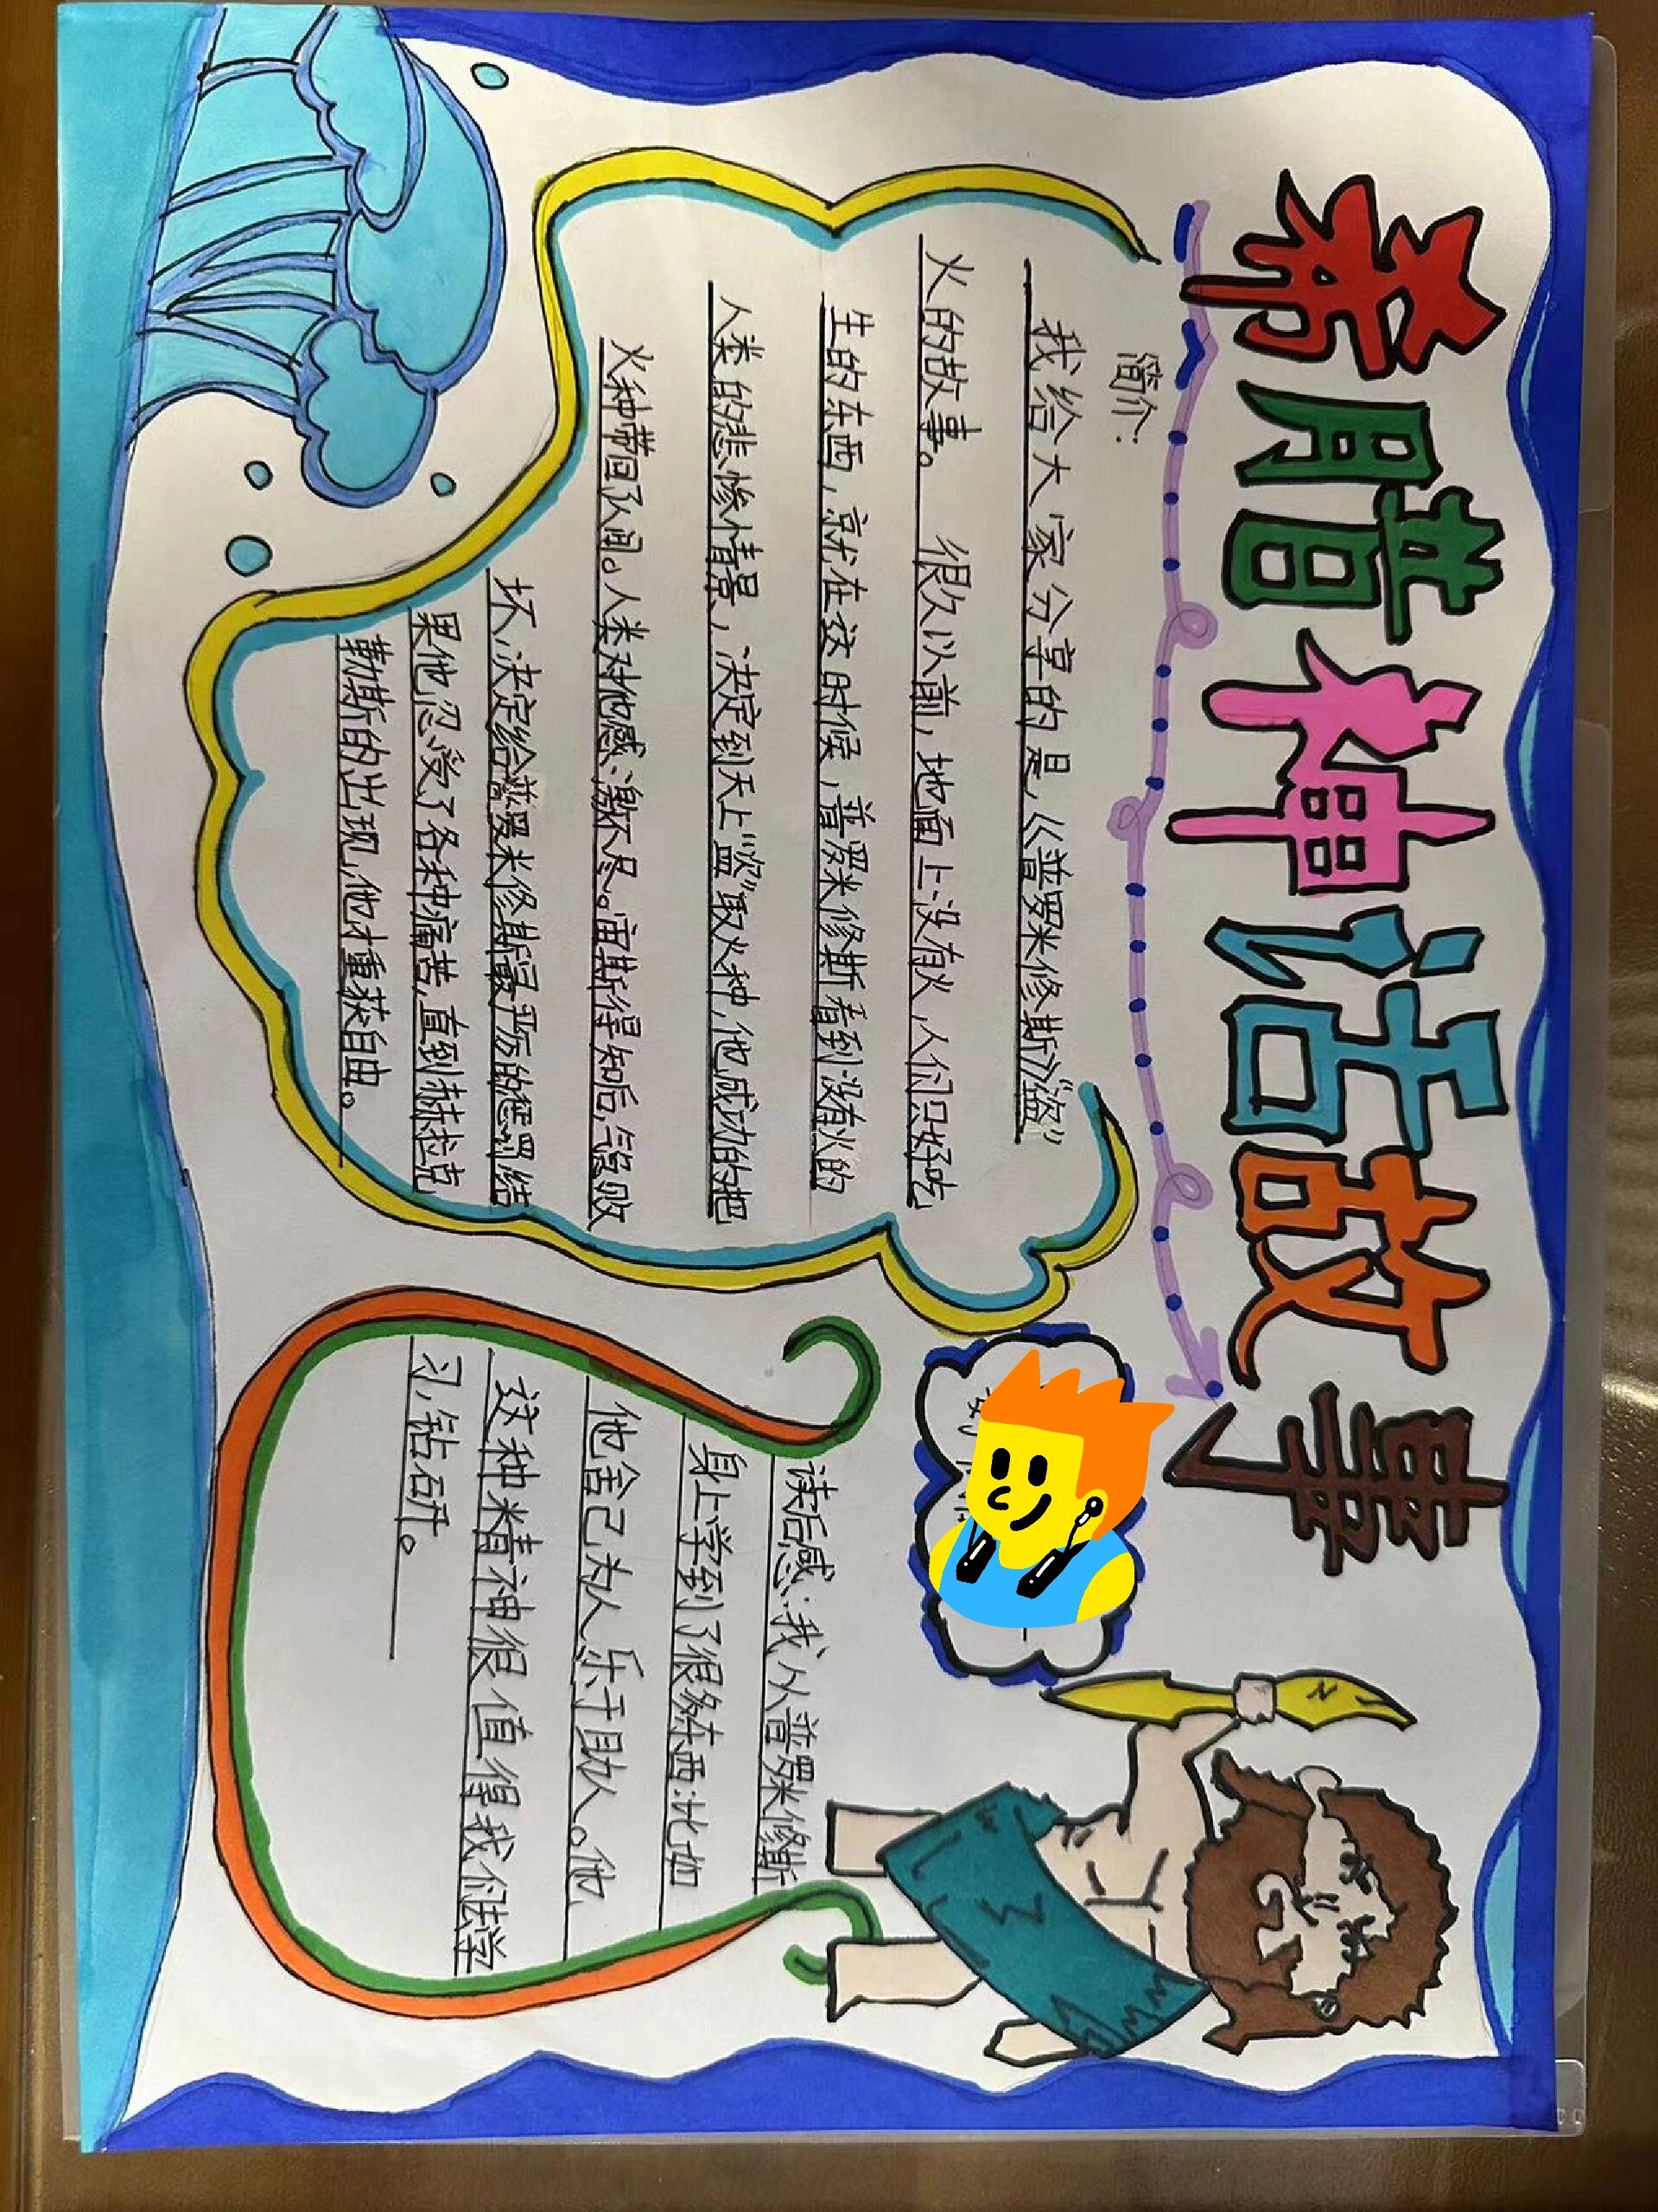 希腊神话故事
简介:
我给大家分享的是,《普罗米修斯》“盗”
火的故事。 很久以前,地面上没有火,人们只好吃
生的东西,就在这时候,普罗米修斯看到没有火的
人类的悲惨情景,决定到天上“盗”取火种,他成功的把
火种带回人间。人类对他感激不尽。宙斯得知后,气急败
坏,决定给普罗米修斯最严厉的惩罚,结
果他忍受了各种痛苦,直到赫拉克
勒斯的出现,他才重获自由。
读后感:我从普罗米修斯
身上学到了很多东西:比如
他舍己为人,乐于助人。他
这种精神很值得我们去学
习,钻研。